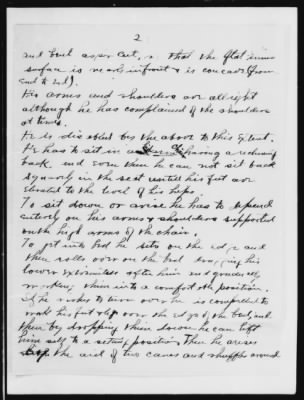 2
and heel as per cut, so that the flat inner
surface is nearly in front & is concave (from
end to end).
His arms and shoulders are all right
although he has complained of the shoulders
at times.
He is disabled by the above to this extent.
He has to sit in a having a reclining
back and even then he can not sit back
squarely in the seat until his feet are
elevated to the level of his hips.
To sit down or arise he has to depend
entirely on his arms & shoulders supported
on the high arms of the chair.
To get into bed he sits on the edge and
then rolls over on the bed his
lower extremities after him and gradually
them into a comfortable position.
If he wishes to turn over he is compelled to
his feet over the edge of the bed, and
then by dropping them down he can lift
him self to a setting position. Then he arises
the aid of two canes and shuffles around